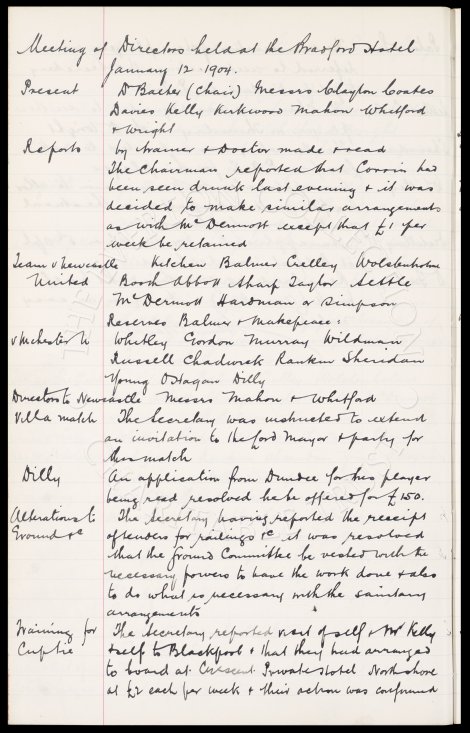 Meeting of Directors held at the Bradford Hotel
January 12 1904.
Present Dr Baxter (Chair) Messrs Clayton Coates
Davies Kelly Kirkwood Mahon Whitford
& Wright
Reports by Trainer & Doctor made & read
The Chairman reported that Corrin had
been seen drunk last evening & it was
decided to make similar arrangements
as with McDermott except that £1 per
week be retained
Team v Newcastle Kitchen Balmer Crelley Wolstenholme
United Booth Abbott Sharp Taylor Settle
McDermott Hardman or Simpson
Reserves Balmer & Makepeace:
v Mchester U Whitley Gordon Murray Wildman
Russell Chadwick Rankin Sheridan
Young O'Hagan Dilly
Directors to Newcastle Messrs Mahon & Whitford
Villa match The Secretary was instructed to extend
an invitation to the Lord Mayor & party for
this match
Dilly An application from Dundee for this player
being read resolved he be offered for £150.
Alterations to The Secretary having reported the receipt
Ground &c of tenders for railings &c it was resolved
that the Ground Committee be vested with the
necessary powers to have the work done & also
to do what is necessary with the sanitary
arrangements
Training for The Secretary reported visit of self & Mr Kelly
Cup tie & self to Blackpool & that they had arranged
to board at Crescent Private Hotel North shore
at £2 each per week & their action was confirmed